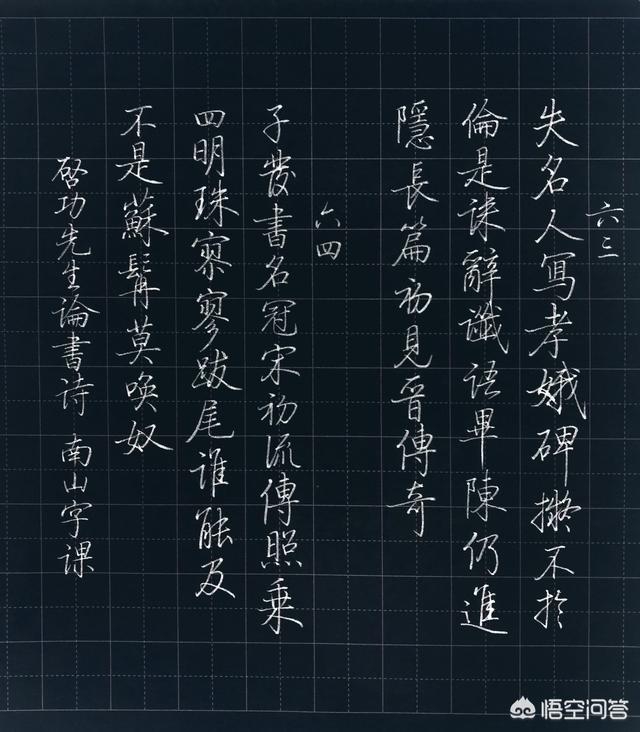 六三
失名人寫孝娥碑擬不於
倫是誄辭讖语畢陳仍進
隱長篇初見晉傳奇
六四
子發書名冠宋初流傳照乘
四明珠寥寥跋尾谁能及
不是蘇髯莫喚奴
啓功先生論書诗 南山字课
悟空问答